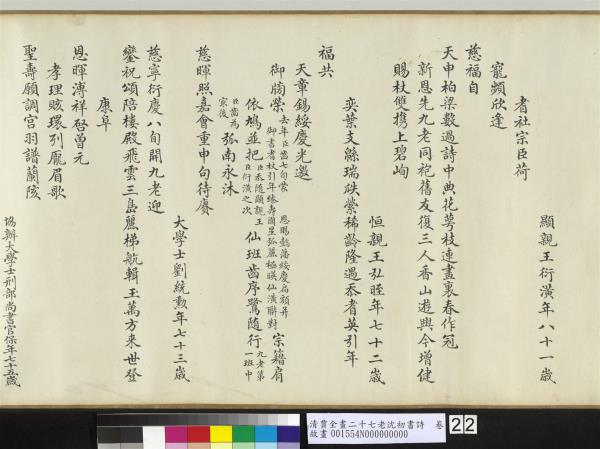 顯親王衍潢年八十一歲
耆社宗臣荷
寵頻欣逢
慈福自
天申柏梁數過詩中典花萼枝連畫裏春作冠
新恩先九老同袍舊友復三人香山遊興今增健
賜杖雙攜上碧峋
恒親王弘晊年七十二歲
奕葉支緜瑞牒縈稀齡隆遇忝耆英引年
福共
天章錫綏慶光邀
御牓榮去年臣齒七旬蒙恩賜懿藩綏慶扁額并御書耆杖引年臻壽圖呈弧麗極暎仙潢聯對宗籍肩
依鳩並把臣忝隨顯親王臣衍潢之次仙班齒序鷺隨行九老第一班中
臣齒為宗後孤南永沐
慈暉照嘉會重申句待賡
大學士劉統勳年七十三歲
慈寧衍慶八旬開九老迎
鑾祝頌陪樓殿飛雲三島麗梯航輯玉萬方來世登
康阜
恩暉溥祥啓曽元
孝理晐環列龐眉歌
聖壽願調宮羽譜蘭陔
協辦大學士刑部尚書官保年七十五歲
清賈全畫二十七老沈初書詩 卷 22
故畫 001554N000000000